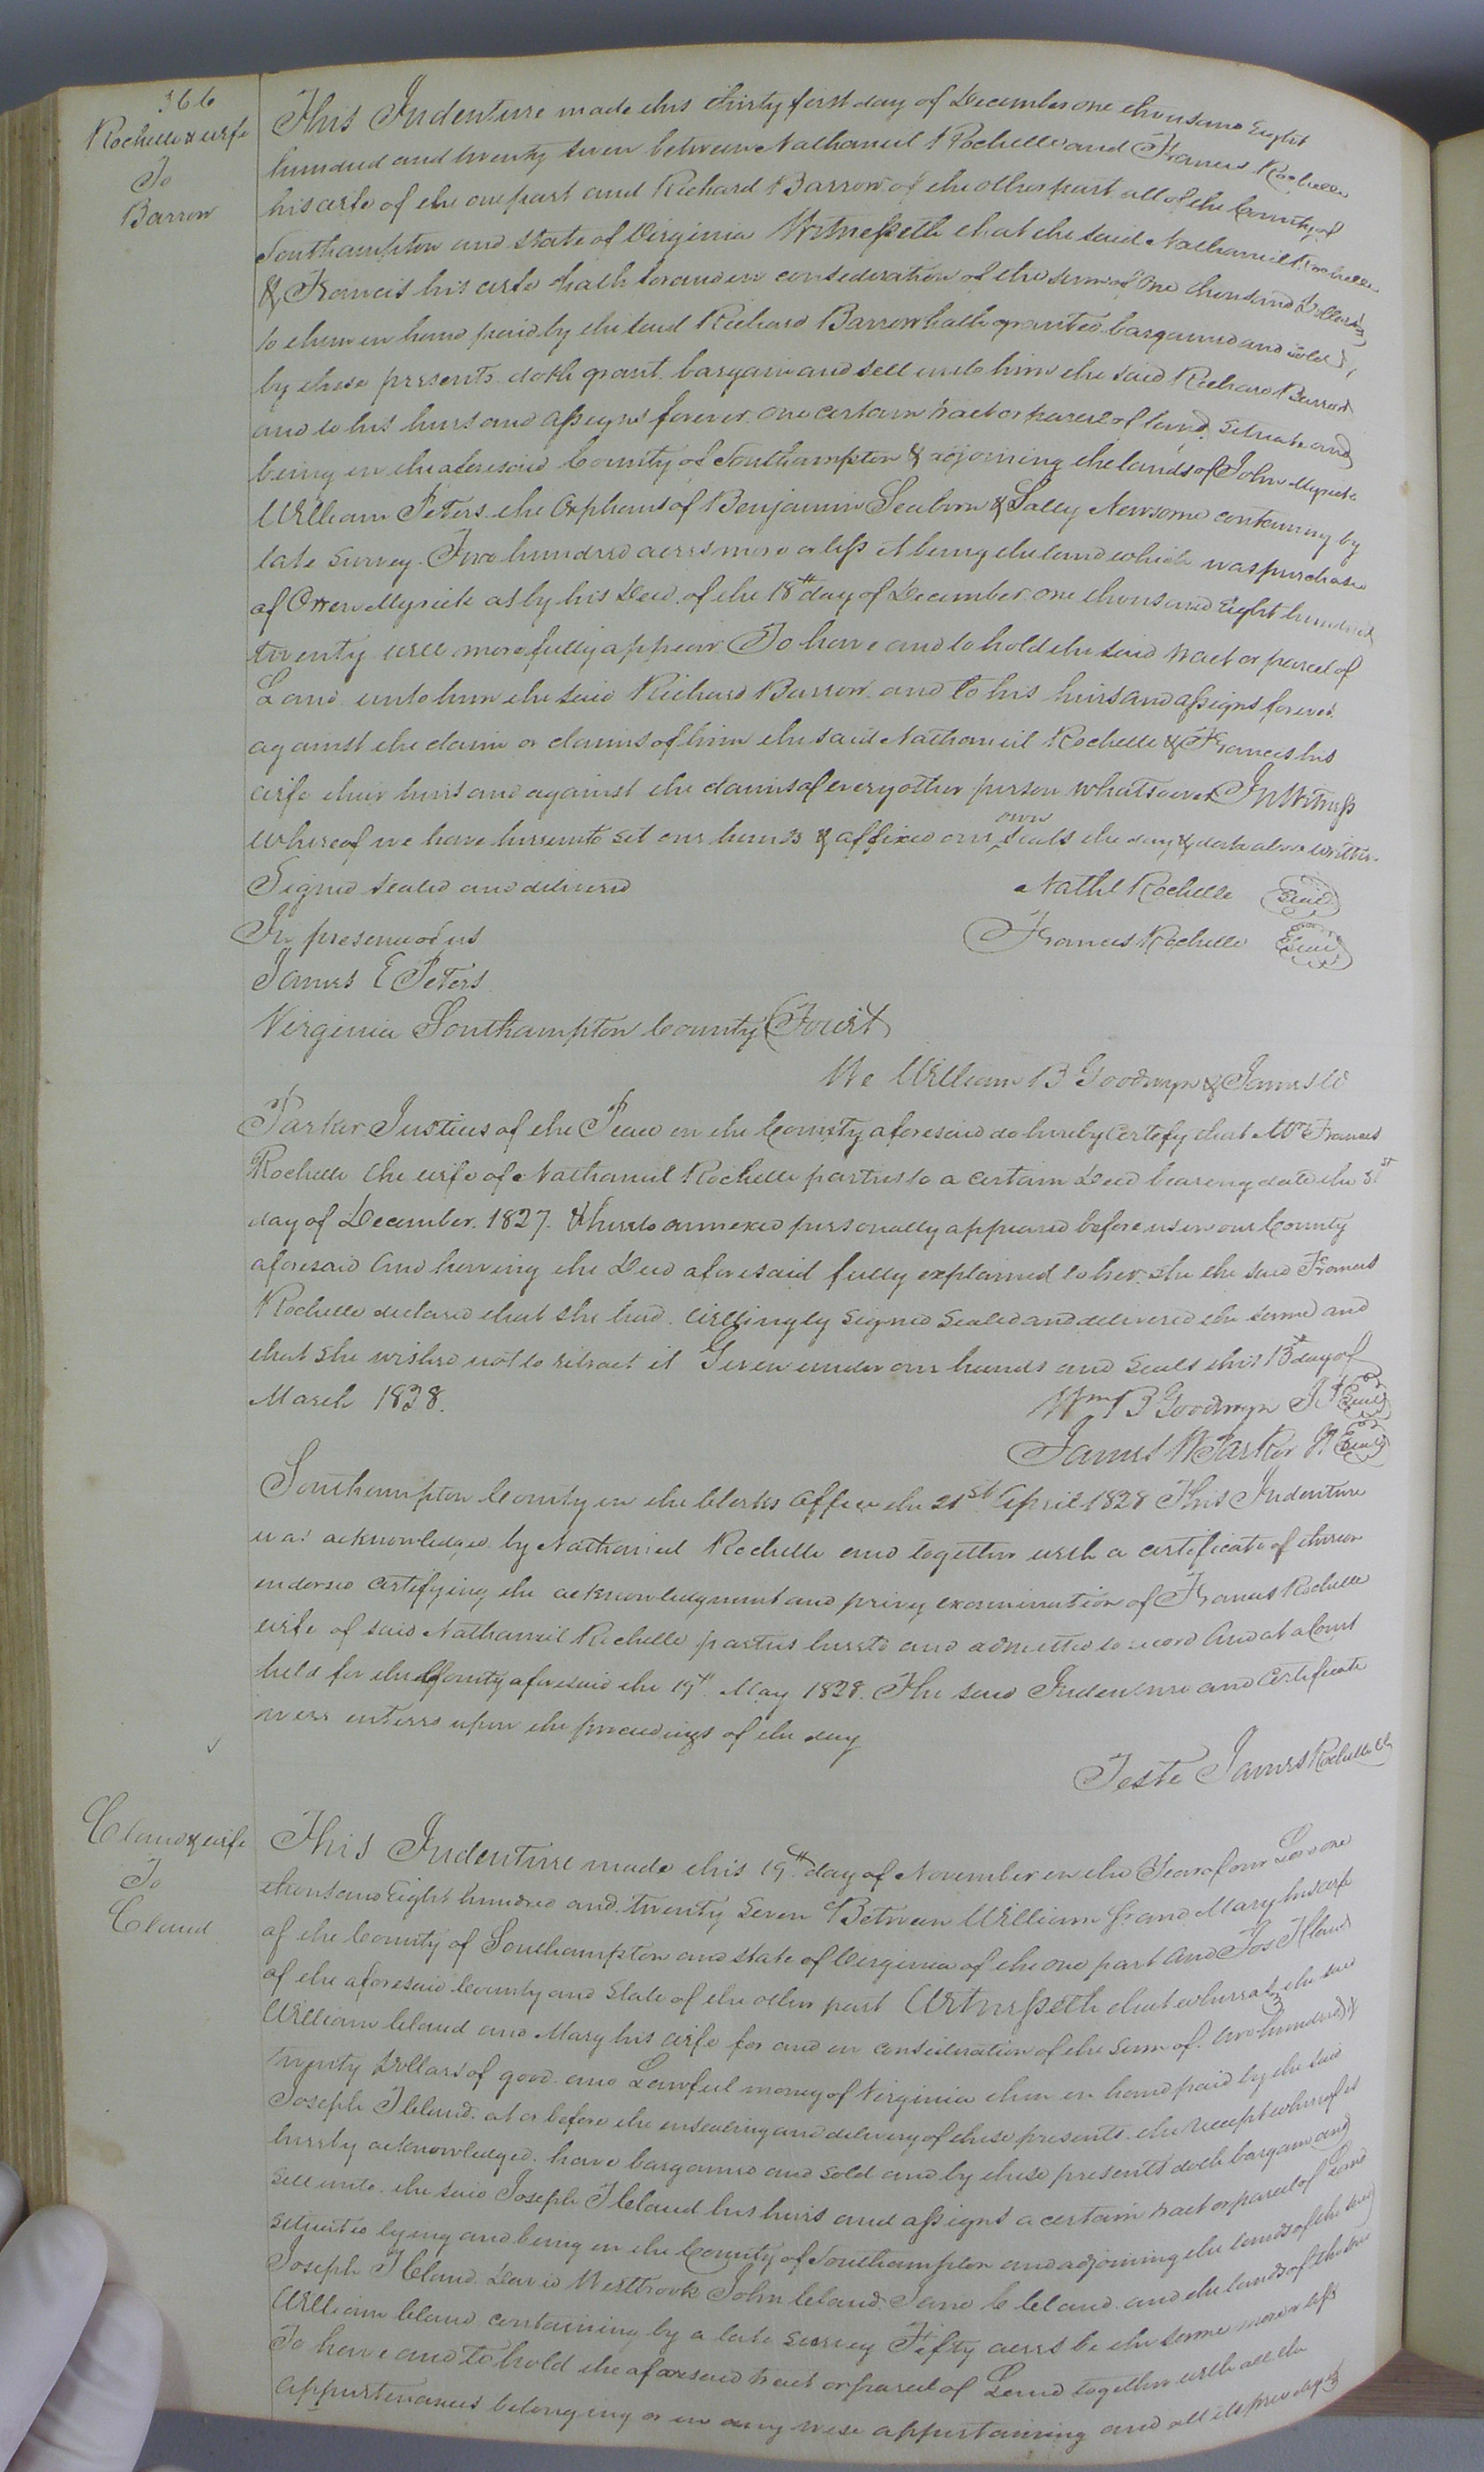 366
Rochelle & wife
To
Barrow
This Indenture made this thirty first day of December one thousand Eight
hundred and twenty seven between Nathaniel Rochelle and Francis Rochelle
his wife of the one part and Richard Barrow of the other part all of the County of
Southampton and State of Virginia Witnesseth that the said Nathaniel Rochelle
& Francis his wife hath for and in consideration of the sum of One thousand Dollars
to them in hand paid by the said Richard Barrow hath granted bargained and sold
by these presents doth grant bargain and sell unto him the said Richard Barrow
and to his heirs and assigns forever one certain tract or parcel of land situate and
being in the aforesaid County of Southampton & adjoining the lands of John Myrick
William Peters the Orphans of Benjamin Seaborn & Sally Newsome containing by
late survey Two hundred acres more or less it being the land which was purchased
of Orren Myrick as by his Deed of the 18th day of December one thousand Eight hundred
twenty will more fully appear To have and to hold the said tract or parcel of
Land unto him the said Richard Barrow and to his heirs and assigns forever
against the claim or claims of him the said Nathaniel Rochelle & Francis his
wife their heirs and against the claims of every other person whatsoever In Witness
whereof we have hereunto set our hands & affixed our own seals the day & date above written
Signed sealed and delivered Nathl Rochelle Seal
In presence of us Francis Rochelle Seal
James E Peters
Virginia Southampton County Towit
We William B Goodwyn & James W
Parker Justices of the Peace in the County aforesaid do hereby Certify that Mrs Francis
Rochelle the wife of Nathaniel Rochelle parties to a certain Deed bearing date the 31st
day of December 1827 & hereto annexed personally appeared before us in our County
aforesaid And having the Deed aforesaid fully explained to her she the said Francis
Rochelle declared that she had willingly signed sealed and delivered the same and
that she wished not to retract it Given under our hands and seals this 13th day of
March 1828.
Wm B Goodwyn JP Seal
James W Parker JP Seal
Southampton County in the Clerks Office the 21st April 1828 This Indenture
was acknowledged by Nathaniel Rochelle and together with a certificate of thereon
endorsed certifying the acknowledgment and privy examination of Francis Rochelle
wife of said Nathaniel Rochelle parties hereto and admitted to record And at a Court
held for the County aforesaid the 19th May 1828. The said Indenture and Certificate
were entered upon the proceedings of the day
Teste James Rochelle Clk
Claud & wife
To
Claud
This Indenture made this 19th day of November in the Year of our Lord one
thousand Eight hundred and twenty Seven Between William and Mary his wife
of the County of Southampton and State of Virginia of the one part And Jos J Claud
of the aforesaid County and State of the other part Witnesseth that whereas the said
William Claud and Mary his wife for and in consideration of the sum of two hundred &
twenty Dollars of good and Lawful money of Virginia them in hand paid by the said
Joseph J Claud at or before the ensealing and delivery of these presents the receipt whereof is
hereby acknowledged have bargained and sold and by these presents doth bargain and
sell unto the said Joseph J Claud his heirs and assigns a certain tract or parcel of Land
situated lying and being in the County of Southampton and adjoining the lands of the said
Joseph J Claud David Westbrook John Claud Jane C Claud and the lands of the said
William Claud containing by a late survey Fifty acres be the same more or less
To have and to hold the aforesaid tract or parcel of Land together with all the
appurtenances belonging or in any wise appertaining and all its priviledges